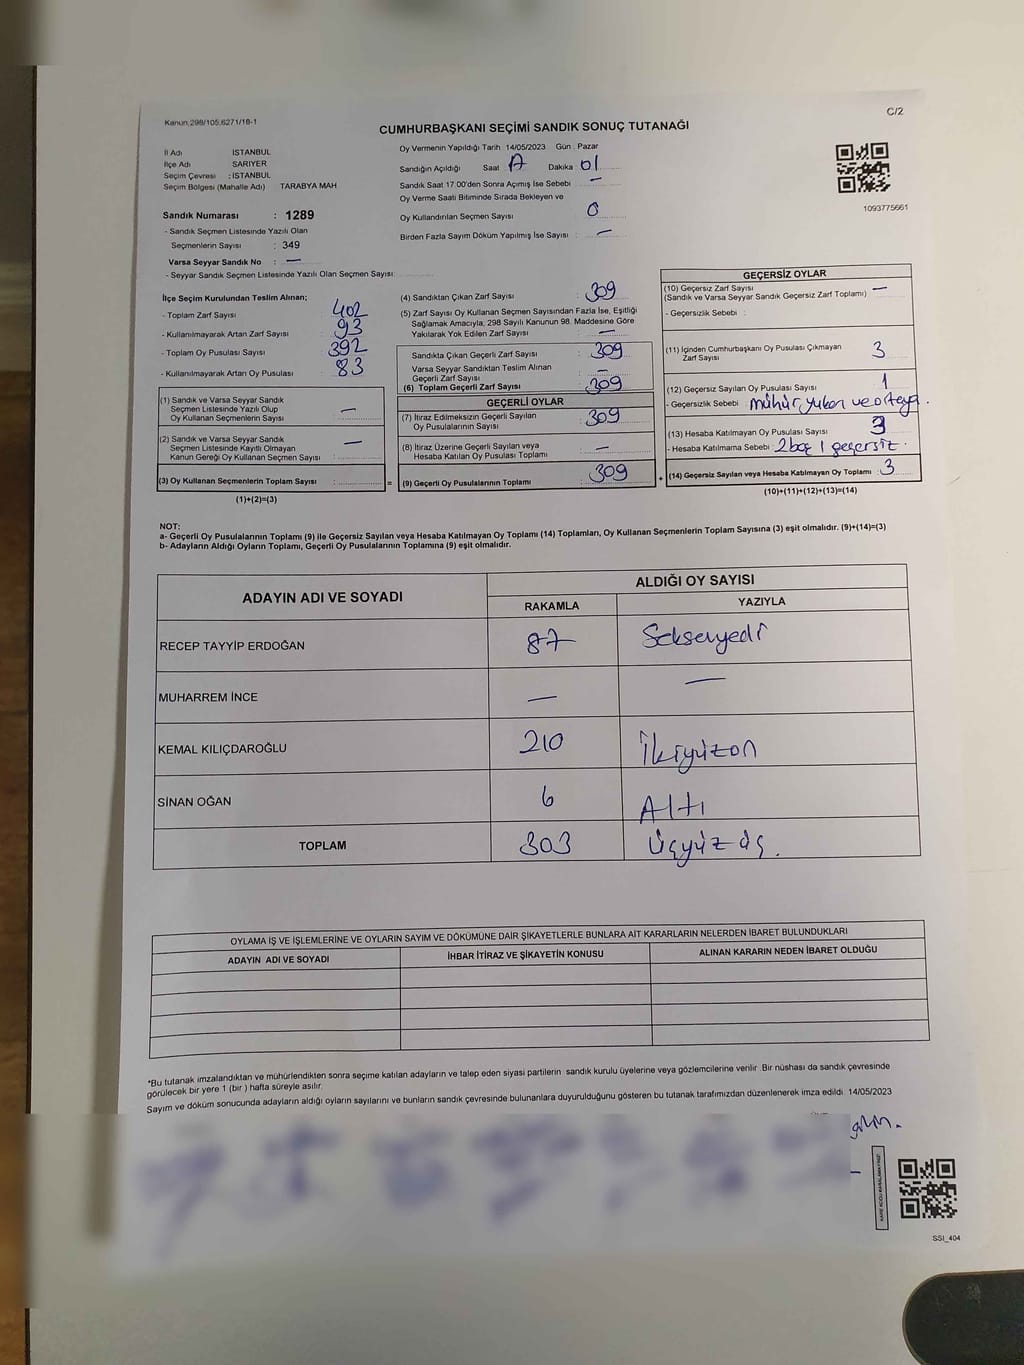 Kanun,298/105,6271/18-1
C/2
CUMHURBAŞKANI SEÇİMİ SANDIK SONUÇ TUTANAĞI
İl Adı İSTANBUL
İlçe Adı SARIYER
Seçim Çevresi : İSTANBUL
Seçim Bölgesi (Mahalle Adı) TARABYA MAH
Sandık Numarası : 1289
- Sandık Seçmen Listesinde Yazılı Olan
Seçmenlerin Sayısı : 349
Varsa Seyyar Sandık No : —
- Seyyar Sandık Seçmen Listesinde Yazılı Olan Seçmen Sayısı:
Oy Vermenin Yapıldığı Tarih 14/05/2023 Gün : Pazar
Sandığın Açıldığı Saat Dakika 01
Sandık Saat 17.00'den Sonra Açımış İse Sebebi : —
Oy Verme Saati Bitiminde Sırada Bekleyen ve
Oy Kullandırılan Seçmen Sayısı : 0
Birden Fazla Sayım Döküm Yapılmış İse Sayısı : —
1093775661
İlçe Seçim Kurulundan Teslim Alınan;
- Toplam Zarf Sayısı : 402
- Kullanılmayarak Artan Zarf Sayısı : 93
- Toplam Oy Pusulası Sayısı : 392
- Kullanılmayarak Artan Oy Pusulası : 83
(1) Sandık ve Varsa Seyyar Sandık
Seçmen Listesinde Yazılı Olup
Oy Kullanan Seçmenlerin Sayısı : —
(2) Sandık ve Varsa Seyyar Sandık
Seçmen Listesinde Kayıtlı Olmayan
Kanun Gereği Oy Kullanan Seçmen Sayısı : —
(3) Oy Kullanan Seçmenlerin Toplam Sayısı : =
(1)+(2)=(3)
(4) Sandıktan Çıkan Zarf Sayısı : 309
(5) Zarf Sayısı Oy Kullanan Seçmen Sayısından Fazla İse, Eşitliği
Sağlamak Amacıyla, 298 Sayılı Kanunun 98. Maddesine Göre
Yakılarak Yok Edilen Zarf Sayısı : —
Sandıkta Çıkan Geçerli Zarf Sayısı : 309
Varsa Seyyar Sandıktan Teslim Alınan
Geçerli Zarf Sayısı : —
(6) Toplam Geçerli Zarf Sayısı : 309
GEÇERLİ OYLAR
(7) İtiraz Edilmeksizin Geçerli Sayılan
Oy Pusulalarının Sayısı : 309
(8) İtiraz Üzerine Geçerli Sayılan veya
Hesaba Katılan Oy Pusulası Toplamı : —
(9) Geçerli Oy Pusulalarının Toplamı : 309 +
GEÇERSİZ OYLAR
(10) Geçersiz Zarf Sayısı : —
(Sandık ve Varsa Seyyar Sandık Geçersiz Zarf Toplamı)
- Geçersizlik Sebebi :
(11) İçinden Cumhurbaşkanı Oy Pusulası Çıkmayan
Zarf Sayısı : 3
(12) Geçersiz Sayılan Oy Pusulası Sayısı : 1
- Geçersizlik Sebebi : mühür, yukarı ve ortaya.
(13) Hesaba Katılmayan Oy Pusulası Sayısı : 3
- Hesaba Katılmama Sebebi : 2 boş 1 geçersiz.
(14) Geçersiz Sayılan veya Hesaba Katılmayan Oy Toplamı : 3
(10)+(11)+(12)+(13)=(14)
NOT:
a- Geçerli Oy Pusulalarının Toplamı (9) ile Geçersiz Sayılan veya Hesaba Katılmayan Oy Toplamı (14) Toplamları, Oy Kullanan Seçmenlerin Toplam Sayısına (3) eşit olmalıdır. (9)+(14)=(3)
b- Adayların Aldığı Oyların Toplamı, Geçerli Oy Pusulalarının Toplamına (9) eşit olmalıdır.
ADAYIN ADI VE SOYADI
ALDIĞI OY SAYISI
RAKAMLA YAZIYLA
RECEP TAYYİP ERDOĞAN 87 Seksenyedi
MUHARREM İNCE — —
KEMAL KILIÇDAROĞLU 210 İkiyüzon
SİNAN OĞAN 6 Altı
TOPLAM 303 Üçyüz üç.
OYLAMA İŞ VE İŞLEMLERİNE VE OYLARIN SAYIM VE DÖKÜMÜNE DAİR ŞİKAYETLERLE BUNLARA AİT KARARLARIN NELERDEN İBARET BULUNDUKLARI
ADAYIN ADI VE SOYADI İHBAR İTİRAZ VE ŞİKAYETİN KONUSU ALINAN KARARIN NEDEN İBARET OLDUĞU
*Bu tutanak imzalandıktan ve mühürlendikten sonra seçime katılan adayların ve talep eden siyasi partilerin sandık kurulu üyelerine veya gözlemcilerine verilir. Bir nüshası da sandık çevresinde
görülecek bir yere 1 (bir ) hafta süreyle asılır.
Sayım ve döküm sonucunda adayların aldığı oyların sayılarını ve bunların sandık çevresinde bulunanlara duyurulduğunu gösteren bu tutanak tarafımızdan düzenlenerek imza edildi. 14/05/2023
SSI_404